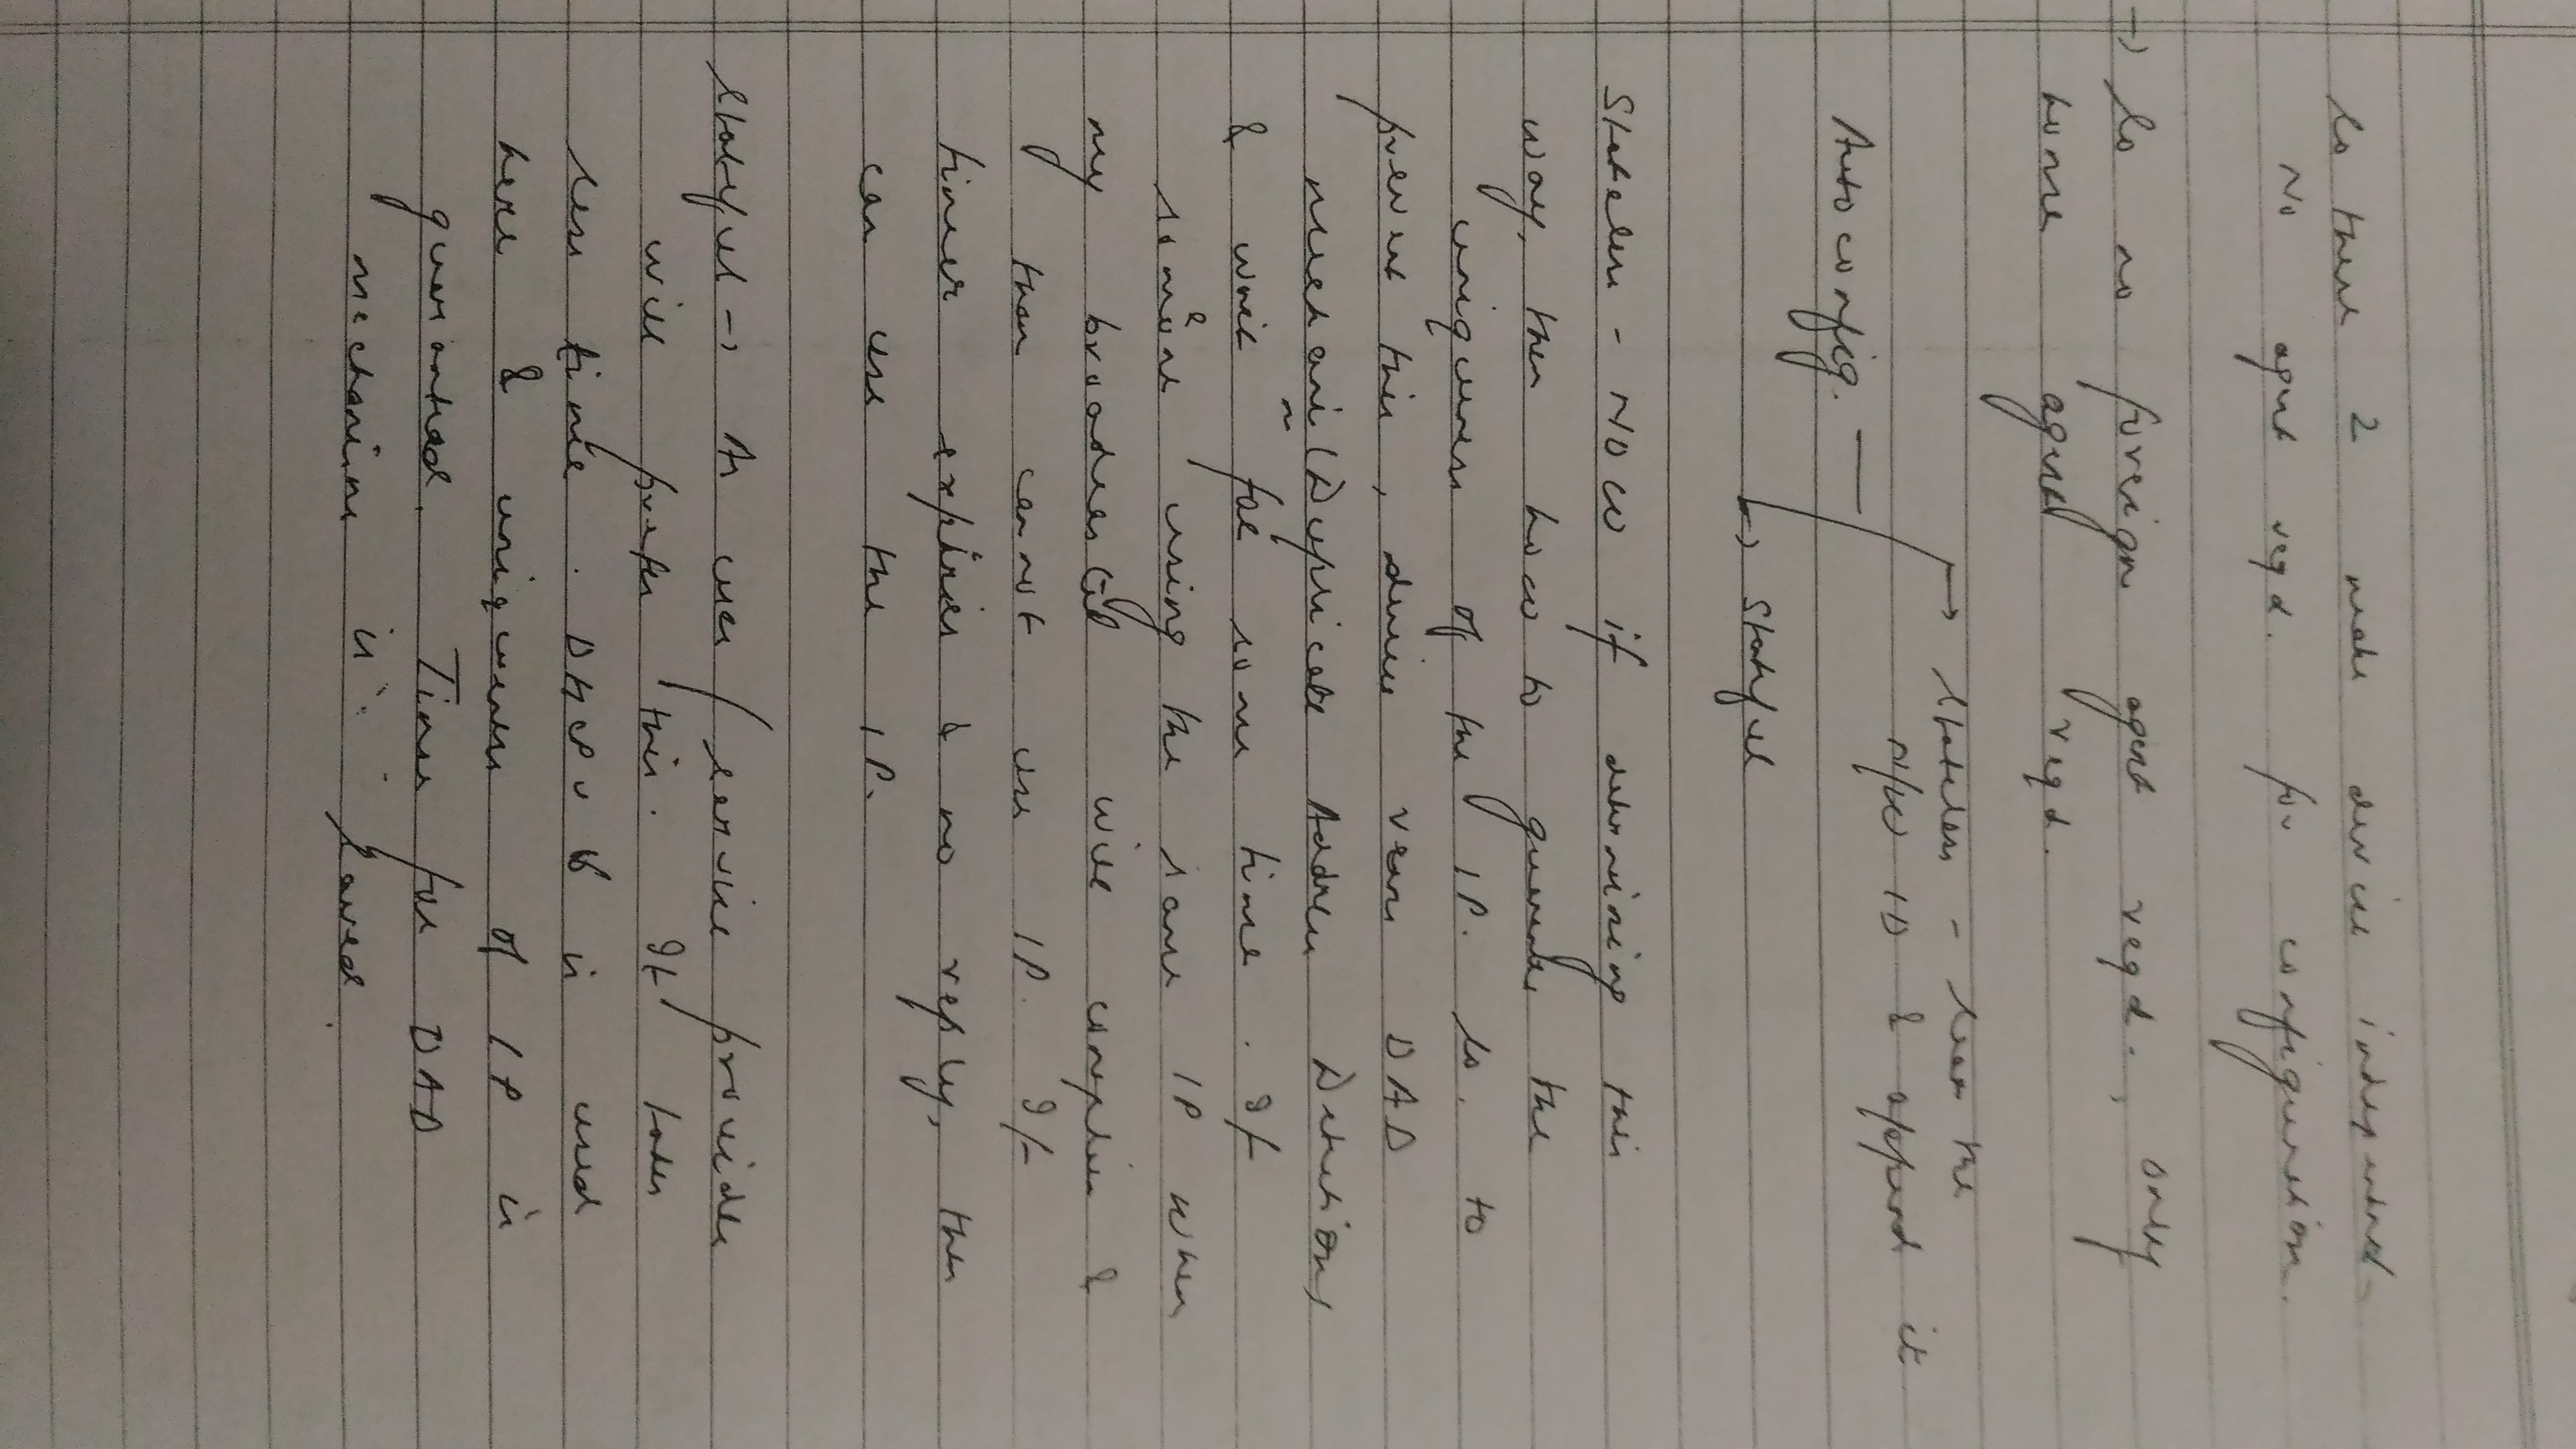 So these 2 make device independent
No agent reqd. for configuration.
→ So no foreign agent reqd., only
home agent reqd.
→ Stateless - hear the
N/W ID & append it
Autoconfig. —
→ Stateful
Stateless - Now if determining this
way, then how to guarantee the
uniqueness of the IP. So. to
prevent this, device DAD
(Duplicate Address Detection)
& wait for some time. If
someone using the same IP when
my will complain &
then cannot use IP. If
timer expires & no reply, then
can use the IP.
Stateful → As user / service provider
will prefer this. It takes
less time. DHCPv6 is used
here & uniqueness of IP is
guaranteed. Time for DAD
mechanism is saved.